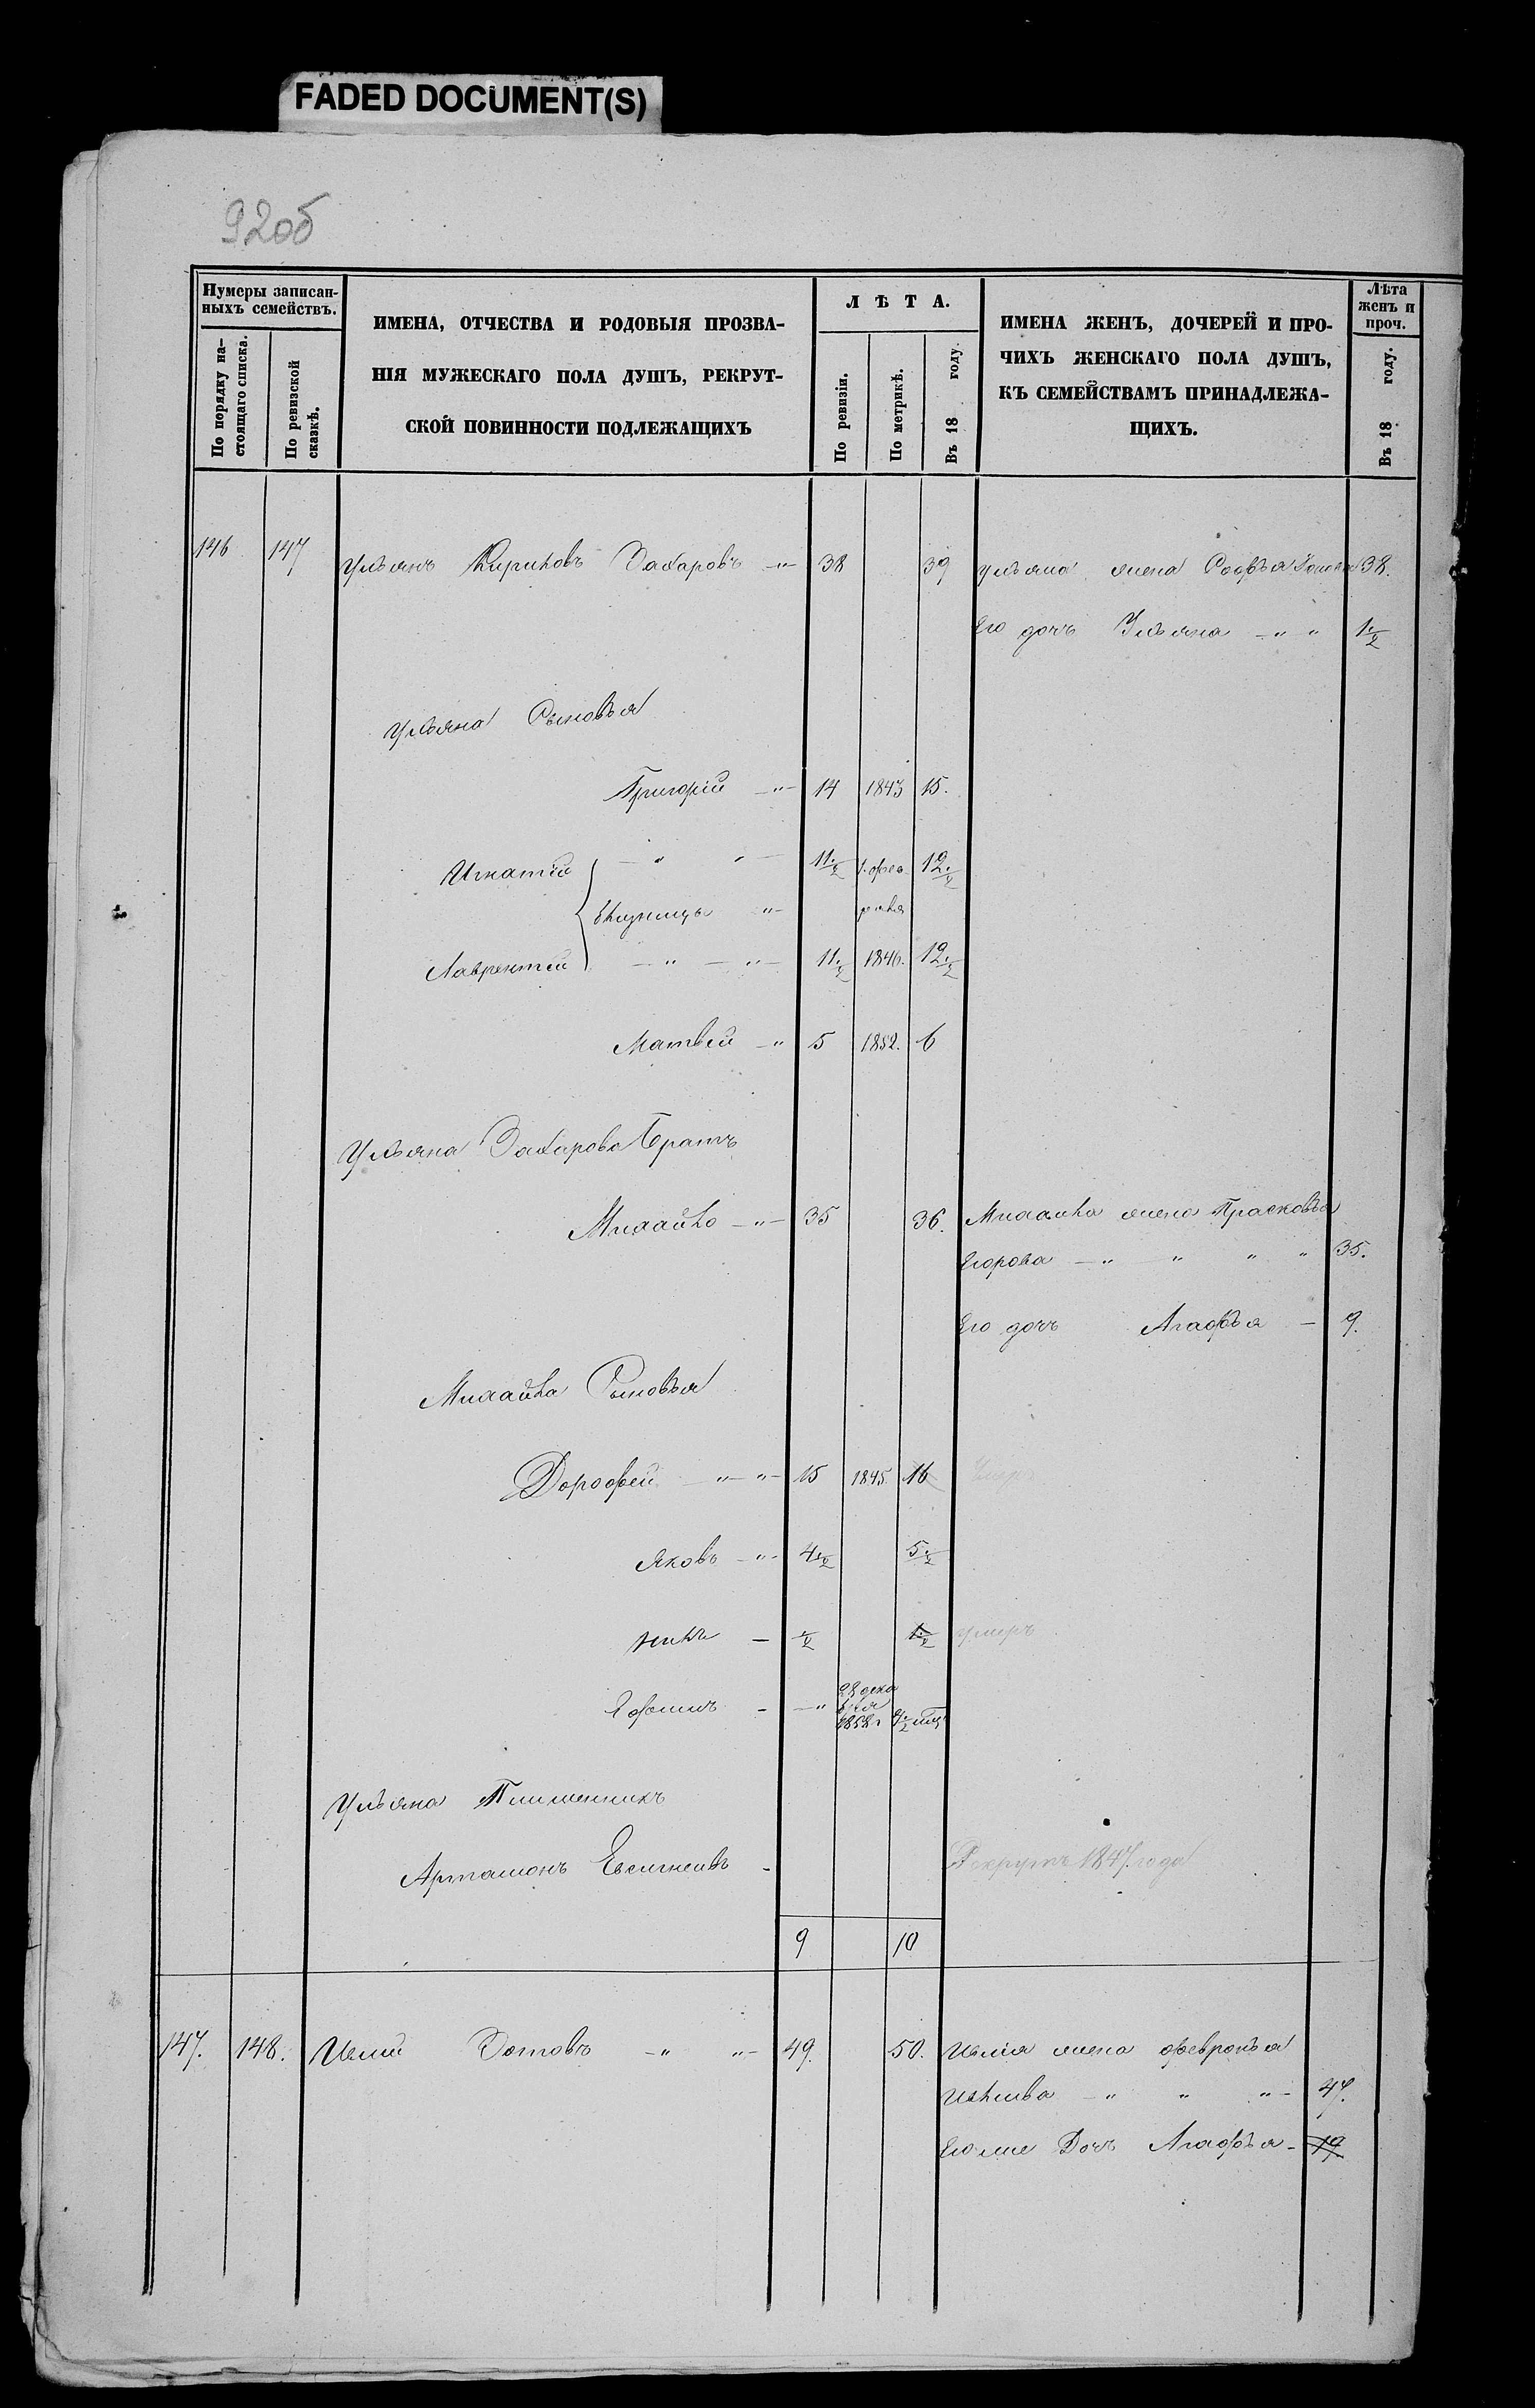 FADED DOCUMENT(S)
92об
Нумеры записан-
ныхъ семействъ.
По порядку на-
стоящаго списка.
По ревизской
сказкѣ.
ИМЕНА, ОТЧЕСТВА И РОДОВЫЯ ПРОЗВА-
НІЯ МУЖЕСКАГО ПОЛА ДУШЪ, РЕКРУТ-
СКОЙ ПОВИННОСТИ ПОДЛЕЖАЩИХЪ
ЛѢТА.
По ревизіи.
По метрикѣ.
Въ 18 году.
ИМЕНА ЖЕНЪ, ДОЧЕРЕЙ И ПРО-
ЧИХЪ ЖЕНСКАГО ПОЛА ДУШЪ,
КЪ СЕМЕЙСТВАМЪ ПРИНАДЛЕЖА-
ЩИХЪ.
Лѣта
женъ и
проч.
Въ 18 году.
146 147 Ульянъ Кириковъ Захаровъ -"- 38 39 Ульяна жена Софья 38.
Его дочь Ульяна -" " 1½
Ульяна Сыновья
Григорій -"- 14 1843 15.
Игнатій -" "- 11.½ 1. фев 12.½
близнецы "- раля
Лаврентій -"- "- 11.½ 1846. 12.½
Матвѣй -" 5 1852. 6
Ульяна Захарова Братъ
Михайло -"- 35 36. Михайла жена Прасковья
Егорова -" " " " 35.
Его дочь Агафья - 9.
Михайла Сыновья
Дорофей -"-"- 15 1845. 16
Яковъ -"- 4½ 5½
- ½ 1.½ умеръ
Ефимъ - -" 28 дека
бря
1858 г ½ мѣц
Ульяна Племенникъ
Артамонъ Евсигнеевъ - Рекрутъ 1847. года
9 10
147. 148. Зотовъ -" "- 49. 50. жена Февронья
-" " "- 47.
Его же Дочь Агафья - 19